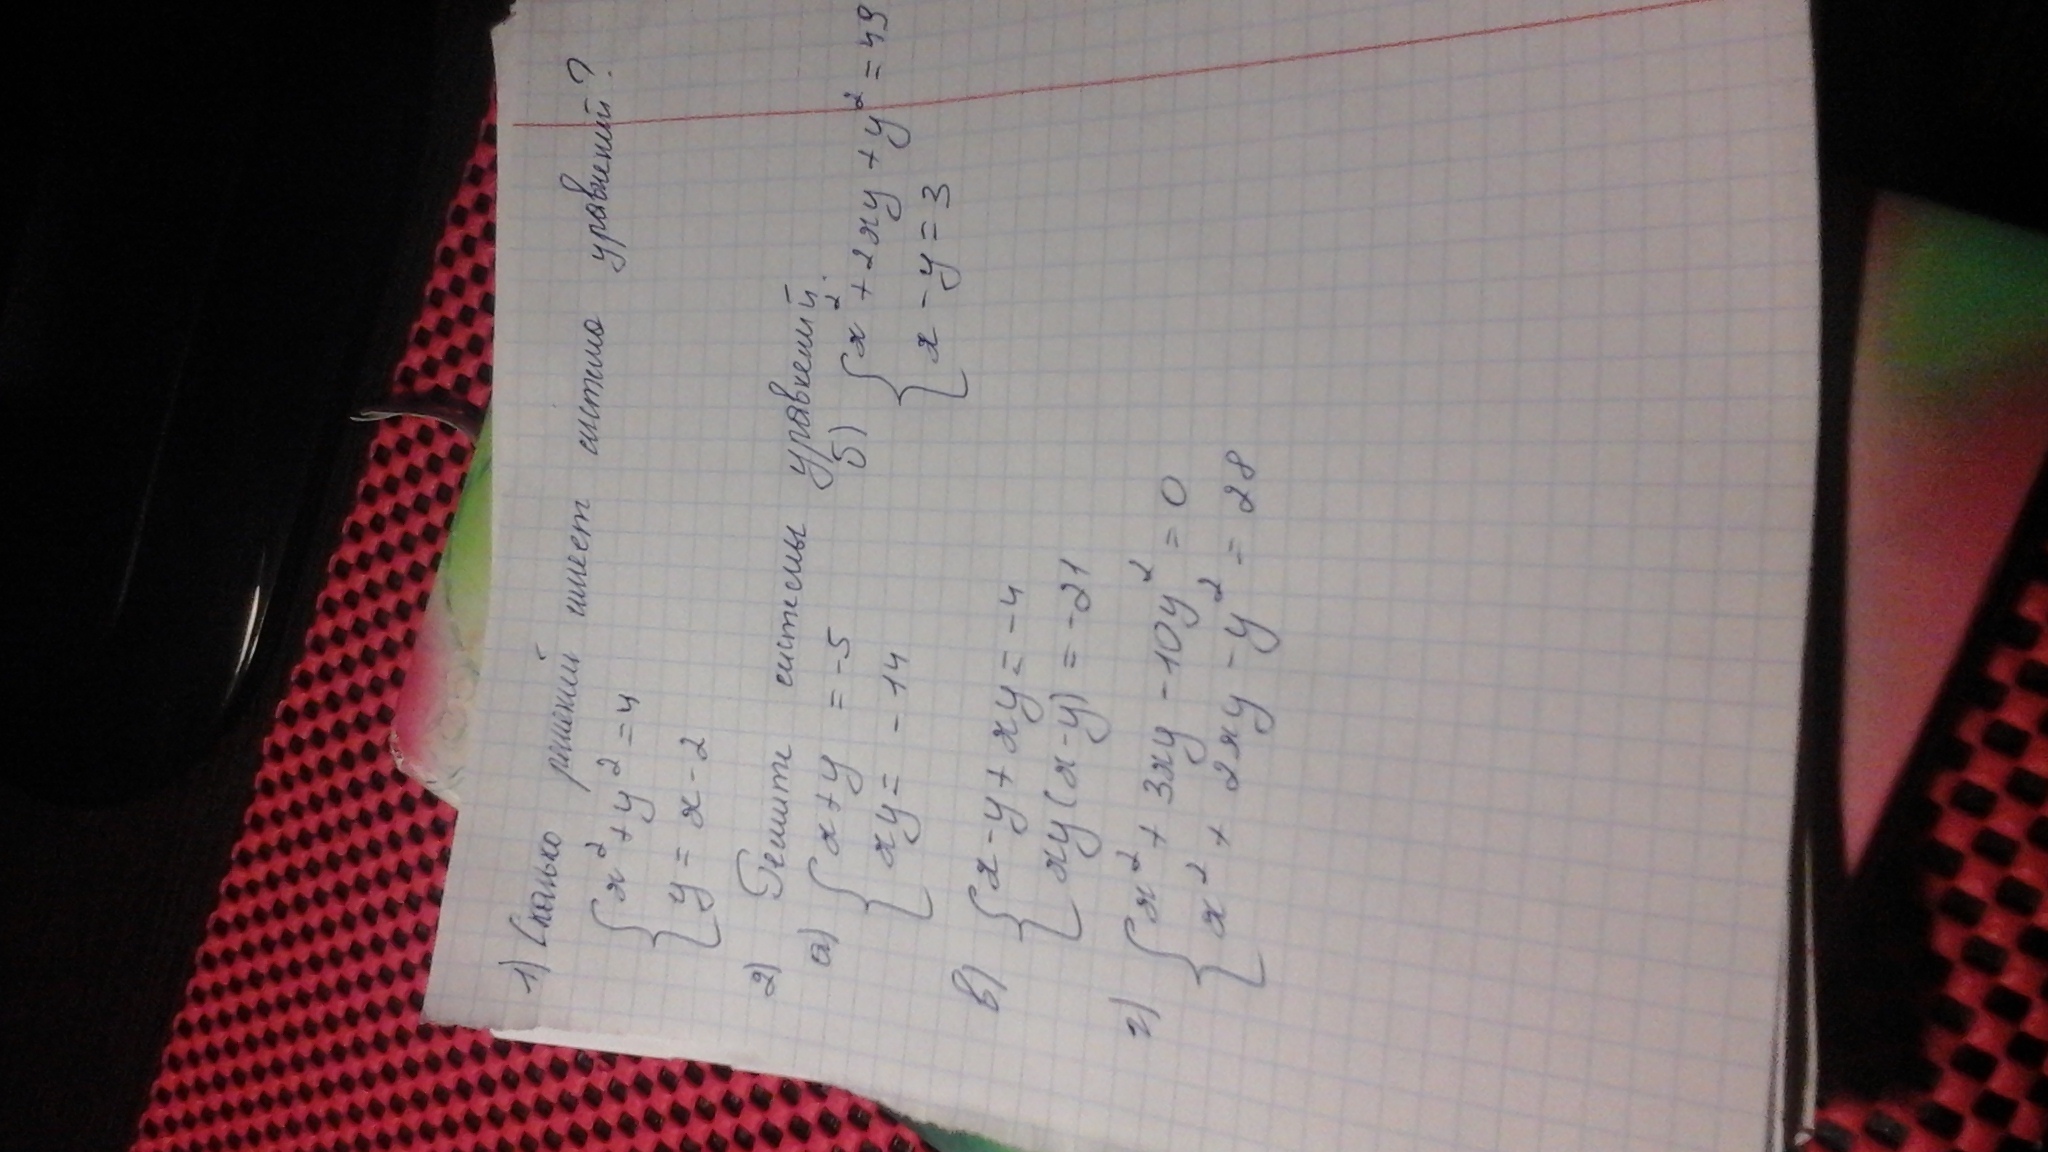 1) Сколько решений имеет система уравнений?
{x² + y² = 4
{y = x - 2
2) Решите системы уравнений.
а) {x + y = -5 б) {x² + 2xy + y² = 49
{xy = -14 {x - y = 3
в) {x - y + xy = -4
{xy(x - y) = -21
г) {x² + 3xy - 10y² = 0
{x² + 2xy - y² = 28